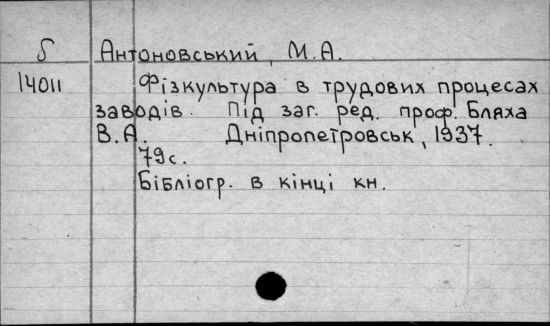 Б Антоновський, М.А.
14011 Фізкультура в трудових процесах
заводів. Під заг. ред. проф. Бляха
В.А. Дніпропетровськ, 1937.
79с.
Бібліогр. в кінці кн.